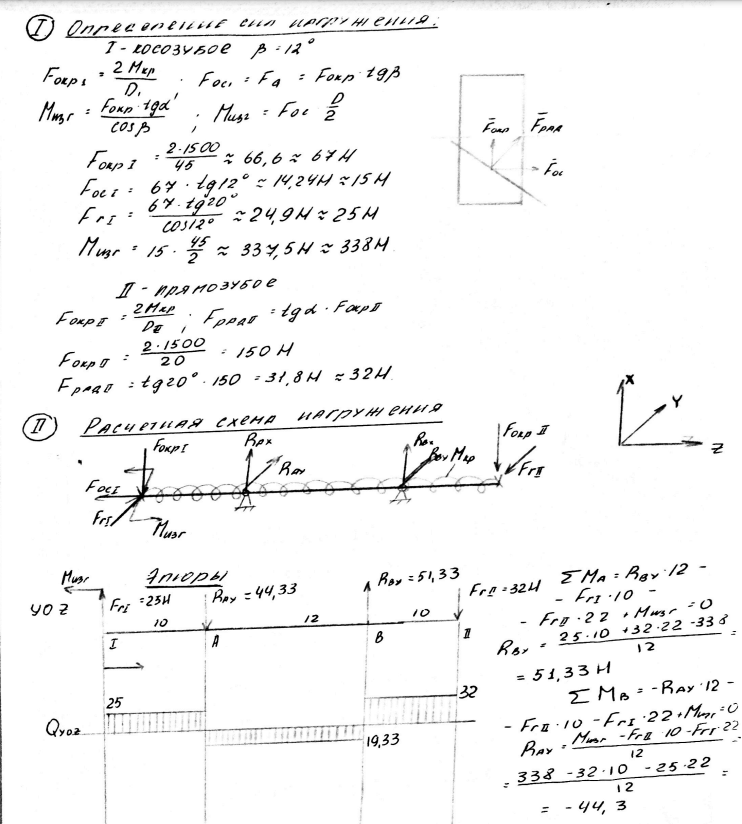 I Определение сил нагружения:
I - косозубое β = 12°
Fокр1 = 2Мкр/D1 ; Fос1 = Fa = Fокр · tgβ
Мизг = Fокр · tgα/cosβ ; Мизг = Fос D/2
F̄окр F̄рад
F̄ос
Fокр I = 2·1500/45 ≈ 66,6 ≈ 67Н
Fос I = 67 · tg12° ≈ 14,24Н ≈ 15Н
Fr I = 67·tg20°/cos12° ≈ 24,9Н ≈ 25Н
Мизг = 15 · 45/2 ≈ 337,5Н ≈ 338Н
II - прямозубое
Fокр II = 2Мкр/DII ; Fрад II = tgα · Fокр II
Fокр II = 2·1500/20 = 150Н
Fрад II = tg20° · 150 = 31,8Н ≈ 32Н.
II Расчетная схема нагружения
X Y Z
Fокр I RAX RBX Fокр II
RAY RBY Мкр Fr II
Fос I
Fr I Мизг
Эпюры
Мизг Fr I = 25Н RAY = 44,33 RBY = 51,33 Fr II = 32Н
YOZ 10 12 10
I A B II
25 32
QYOZ 19,33
ΣMA = RBY · 12 -
- Fr I · 10 -
- Fr II · 22 + Мизг = 0
RBY = 25·10 + 32·22 - 338/12 =
= 51,33 Н
ΣMB = -RAY · 12 -
- Fr II · 10 - Fr I · 22 + Мизг = 0
RAY = Мизг - Fr II · 10 - Fr I · 22/12 =
= 338 - 32·10 - 25·22/12 =
= -44,3